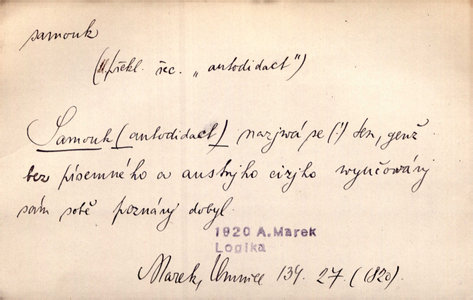 samouk
(překl. řec. „autodidact")
Samouk (autodidact) nazjwá se (!) ten, genž
bez pjsemného a austnjho cizjho wyučowánj
sám sobě poznánj dobyl.
1920 A.Marek
Logika
Marek, Umnice 134. 27. (1820)